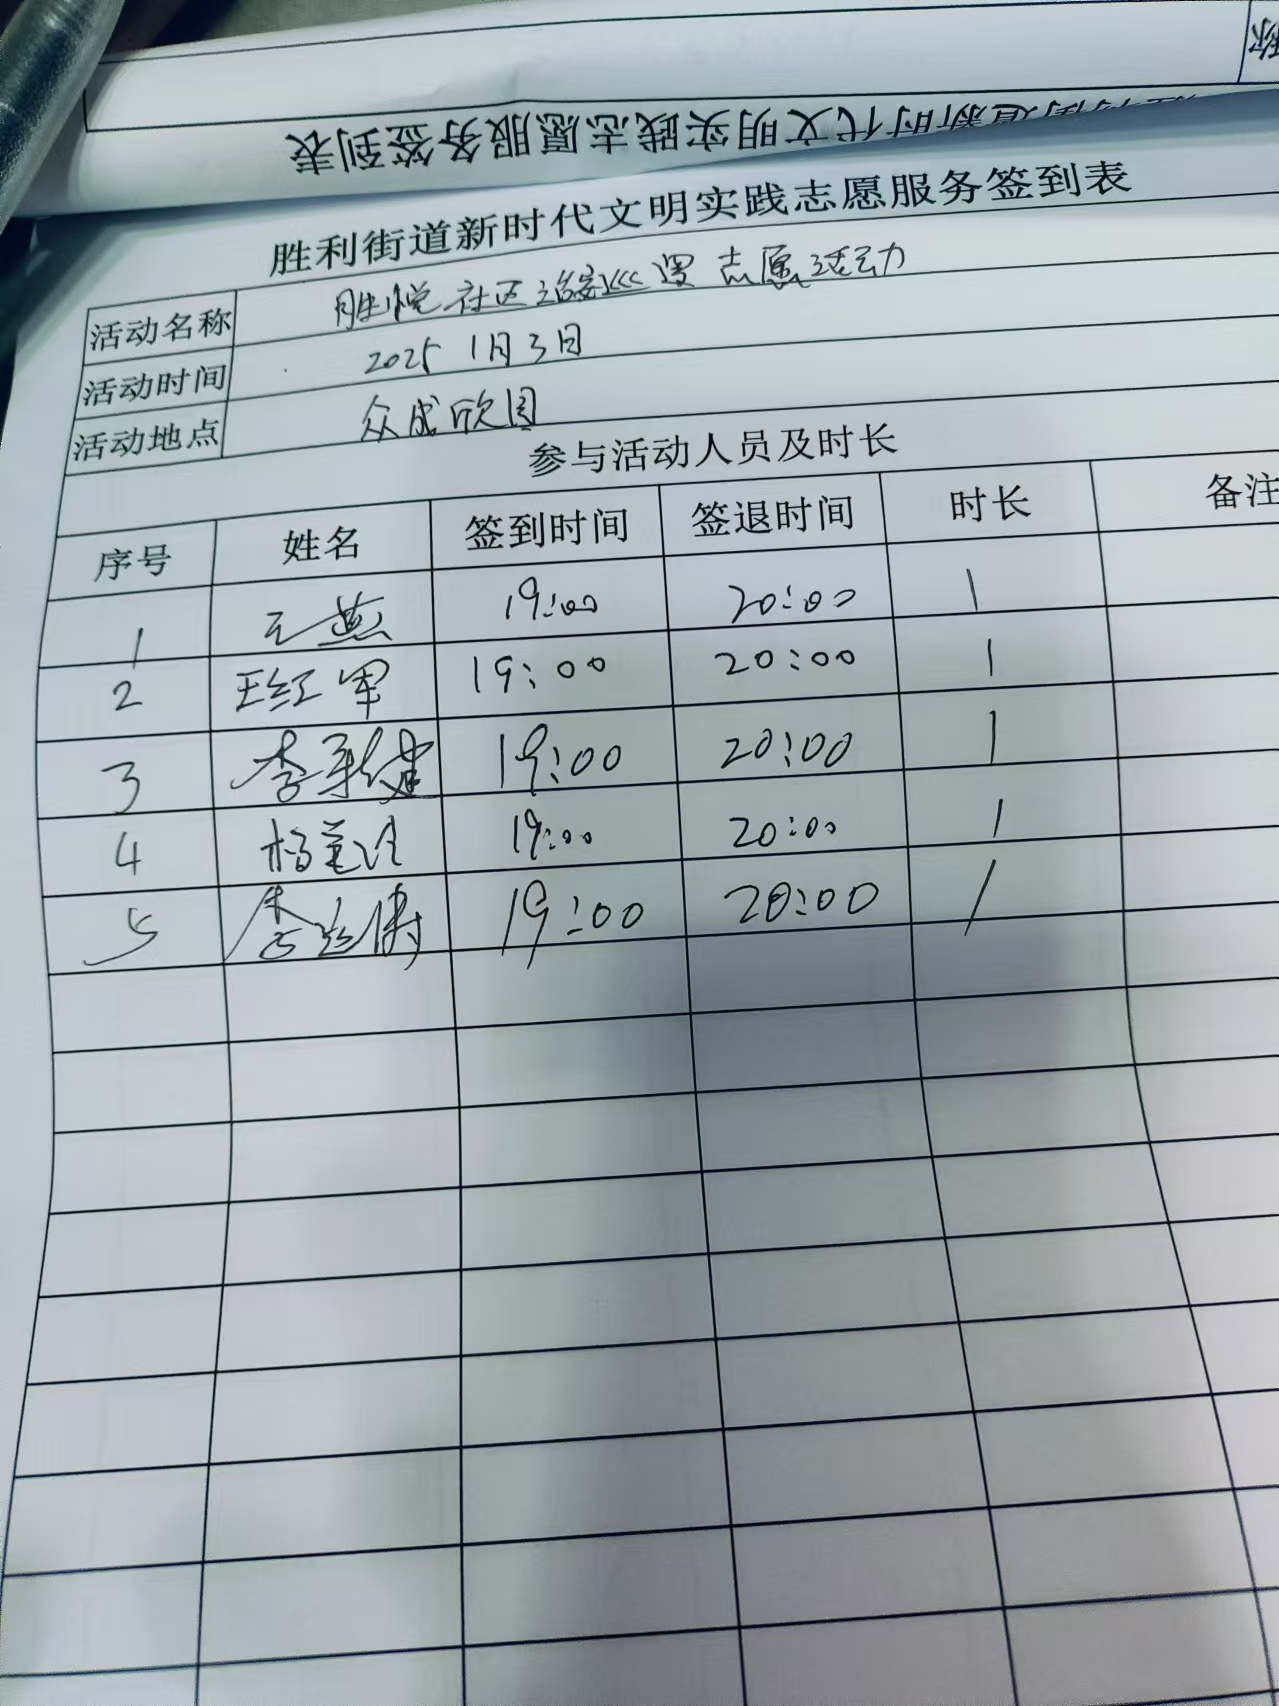 新时代文明实践志愿服务签到表
胜利街道新时代文明实践志愿服务签到表
活动名称 胜悦社区治安巡逻志愿活动
活动时间 2025 1月3日
活动地点 众成欣园
参与活动人员及时长
序号 姓名 签到时间 签退时间 时长 备注
1 王燕 19:00 20:00 1
2 王红军 19:00 20:00 1
3 李 19:00 20:00 1
4 杨 19:00 20:00 1
5 李 19:00 20:00 1